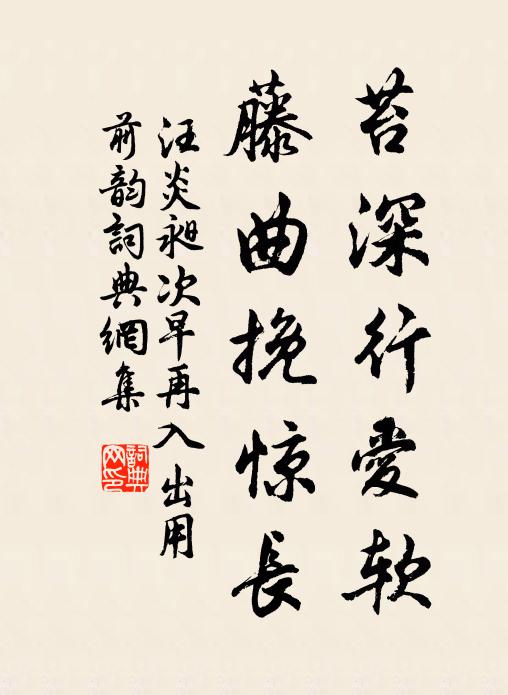 苔深行愛软
藤曲挽惊長
汪炎昶次早再入出用
前韵詞典網集
詞典
网印